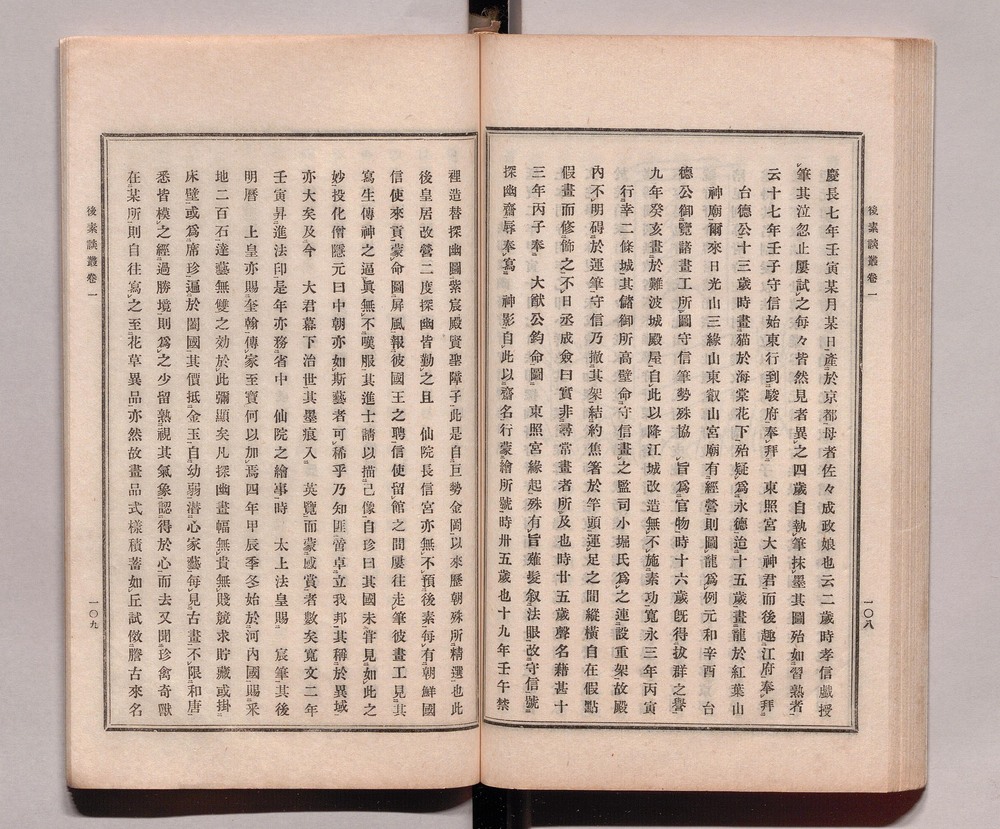 後素談叢卷一
一〇八
慶長七年壬寅某月某日產於京都母者佐々成政娘也云二歲時孝信戲授
筆其泣忽止屢試之每々皆然見者異之四歲自執筆抹墨其圖殆如習熟者
云十七年壬子守信始東行到駿府奉拜 東照宮大神君而後趣江府奉拜
台德公十三歲時畫猫於海棠花下殆疑爲永德迨十五歲畫龍於紅葉山
神廟爾來日光山三緣山東叡山宮廟有經營則圖龍爲例元和辛酉 台
德公御覽諸畫工所圖守信筆勢殊協 旨爲官物時十六歲旣得拔群之譽
九年癸亥畫於難波城殿屋自此以降江城改造無不施素功寬永三年丙寅
行幸二條城其儲御所高壁命守信畫之監司小堀氏爲之連設重架故殿
內不明碍於運筆守信乃撤其架結約焦箸於竿頭運足之間縱橫自在假點
假畫而修飾之不日丞成僉曰實非尋常畫者所及也時廿五歲聲名藉甚十
三年丙子奉 大猷公鈞命圖 東照宮緣起殊有旨薙髮叙法眼改守信號
探幽齋辱奉寫 神影自此以齋名行蒙繪所號時卅五歲也十九年壬午禁
裡造替探幽圖紫宸殿賢聖障子此是自巨勢金岡以來歷朝殊所精選也此
後皇居改營二度探幽皆勤之且 仙院長信宮亦無不預後素每有朝鮮國
信使來貢蒙命圖屛風報彼國王之聘信使留館之間屢往走筆彼畫工見其
寫生傳神之逼眞無不嘆服其進士請以描己像自珍曰其國未甞見如此之
妙投化僧隱元曰中朝亦如斯藝者可稀乎乃知匪啻卓立我邦其稱於異域
亦大矣及今 大君幕下治世其墨痕入 英覽而蒙感賞者數矣寬文二年
壬寅昇進法印是年亦務省中 仙院之繪事時 太上法皇賜 宸筆其後
明曆 上皇亦賜奎翰傳家至寶何以加焉四年甲辰季冬始於河內國賜釆
地二百石達藝無雙之効於此彌顯矣凡探幽畫幅無貴無賤競求貯藏或掛
床壁或爲席珍遍於闔國其價抵金玉自幼弱潛心家藝每見古畫不限和唐
悉皆模之經過勝境則爲之少留熟視其氣象認得於心而去又聞珍禽奇獸
在某所則自往寫之至花草異品亦然故畫品式樣積蓄如丘試倣謄古來名
後素談叢卷一
一〇九